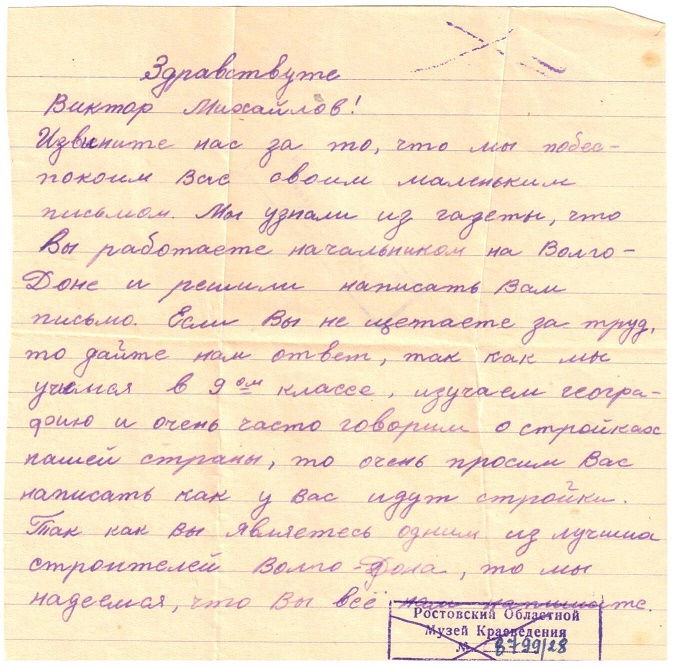 Здравствуте
Виктор Михайлов!
Извините нас за то, что мы побес-
покоим Вас своим маленьким
письмом. Мы узнали из гадеты, что
Вы работаете начальником на Волго-
Доне и решили написать Вам
письмо. Если Вы не щетаете за труд,
то дайте нам ответ, так как мы
учимся в 9ом классе, изучаем геогра-
фию и очень часто говорим о стройках
нашей страны, то очень просим Вас
написать как у Вас идут стройки.
Так как Вы являетесь одним из лучших
строителей Волго-Дона, то мы
надеемся, что Вы всё нам напишите.
Ростовский Областной
Музей Краеведения
№ 8799/28